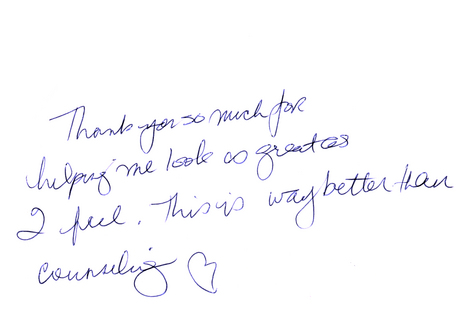 Thank you so much for
helping me look as great as
I feel. This is way better than
counseling ♡